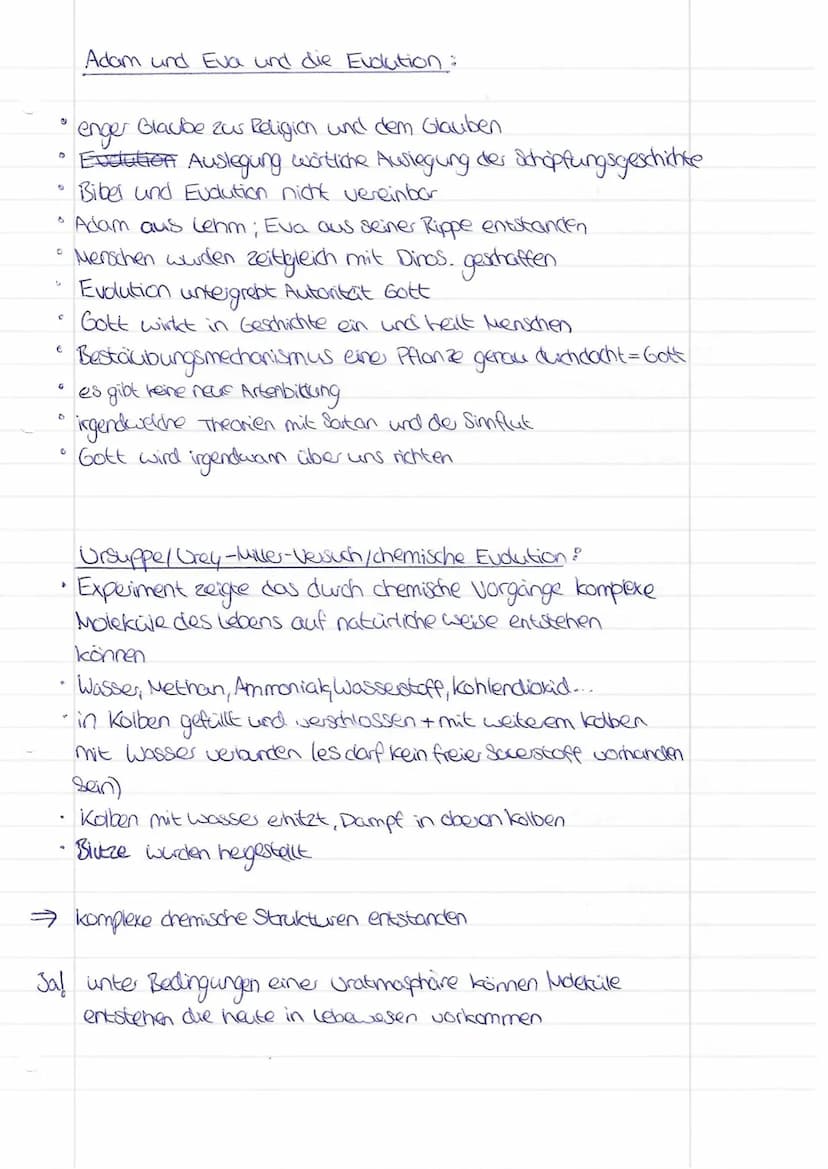 Adam und Eva und die Evolution:
• enger Glaube zur Religion und dem Glauben
• Evolution Auslegung wörtliche Auslegung der Schöpfungsgeschichte
• Bibel und Evolution nicht vereinbar
• Adam aus Lehm; Eva aus seiner Rippe entstanden
• Menschen wurden zeitgleich mit Dinos. geschaffen
• Evolution untergräbt Autorität Gott
• Gott wirkt in Geschichte ein und heilt Menschen
• Bestäubungsmechanismus einer Pflanze genau durchdacht = Gott
• es gibt keine neue Artenbildung
• irgendwelche Theorien mit Satan und der Sinnflut
• Gott wird irgendwann über uns richten
Ursuppe/Urey-Miller-Versuch/chemische Evolution?
• Experiment zeigte das durch chemische Vorgänge komplexe
Moleküle des Lebens auf natürliche weise entstehen
können
• Wasser, Methan, Ammoniak, Wasserstoff, Kohlendioxid...
• in Kolben gefüllt und verschlossen + mit weiterem kolben
mit Wasser verbunden (es darf kein freier Sauerstoff vorhanden
sein)
• Kolben mit wasser erhitzt, Dampf in oberen kolben
• Blitze wurden hergestellt
⇒ komplexe chemische Strukturen entstanden
Ja! unter Bedingungen einer Uratmosphäre können Moleküle
entstehen die heute in Lebewesen vorkommen